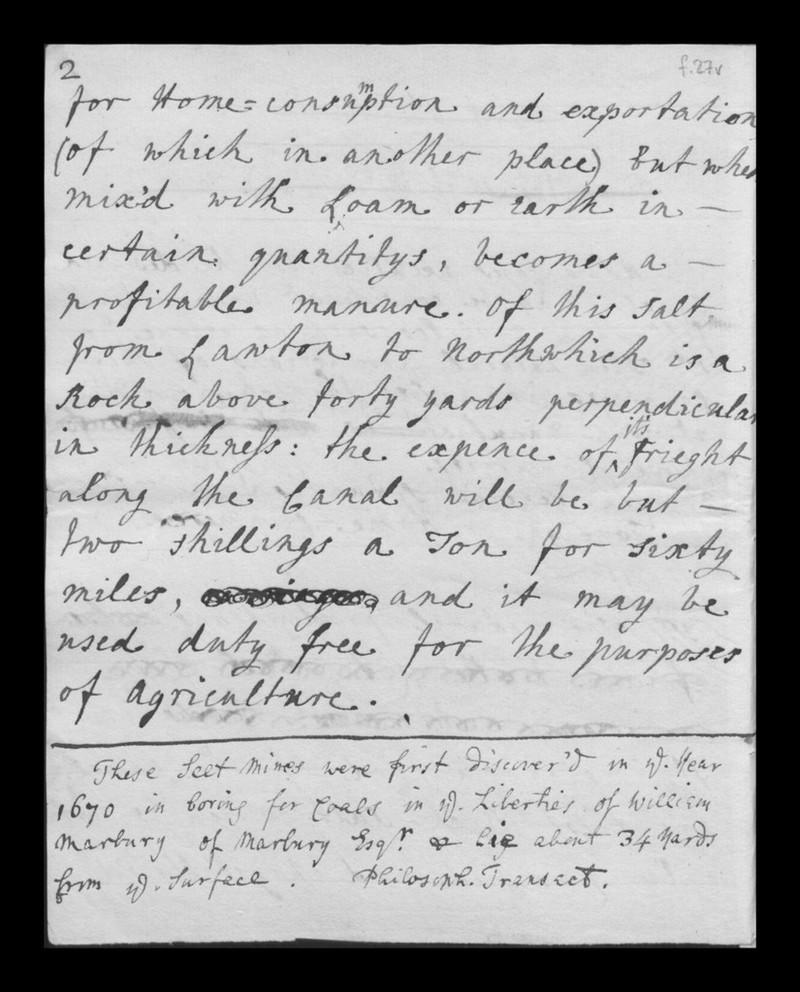 2
f.27v
for Home=consumption and exportation
(of which in another place) But when
mix'd with Loam or Earth in —
certain quantitys, becomes a —
profitable manure. Of this Salt
from Lawton to Northwhich is a
Rock above forty yards perpendicular
in thickneſs: the expence of its Frieght
along the Canal will be but —
two shillings a Ton for sixty
miles, and it may be
used duty free for the purposes
of Agriculture.
These Scet Mines were first discover'd in ye. Year
1670 in boring for Coals in ye. Liberties of William
Marbury of Marbury Esqr. & lie about 34 Yards
from ye. Surface. Philosoph. Transact.